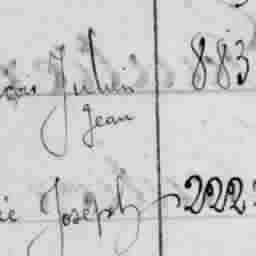 Julien 883
Jean
Joseph 222